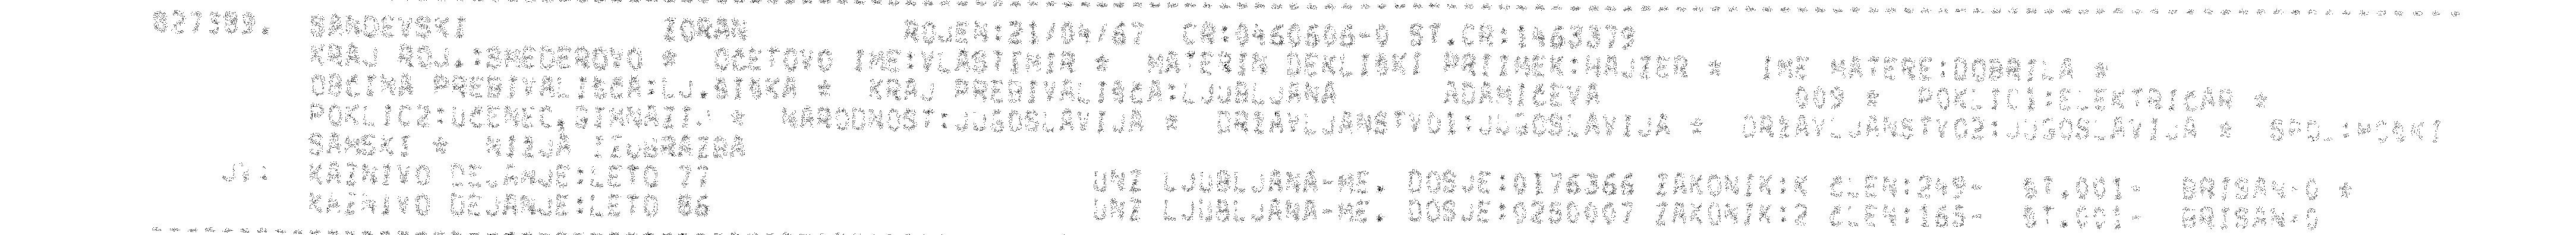 027389. SANDEVSKI ZORAN ROJEN:21/04/67 CR:0460606-0 ST.CR:1463379
KRAJ ROJ.:SMEDEROVO * OCETOVO IME:VLASTIMIR * MATERIN DEKLISKI PRIIMEK:HAJZER * IME MATERE:DOBRILA *
OBCINA PREBIVALISCA:LJ.SISKA * KRAJ PREBIVALISCA:LJUBLJANA ADAMICEVA 009 * POKLIC1:ELEKTRICAR *
POKLIC2:UCENEC,GIMNAZIJ. * NARODNOST:JUGOSLAVIJA * DRZAVLJANSTVO1:JUGOSLAVIJA * DRZAVLJANSTVO2:JUGOSLAVIJA * SPOL:MOSKI
SAMSKI * NIZJA IZOBRAZBA
JV: KAZNIVO DEJANJE:LETO 77 UNZ LJUBLJANA-ME. DOSJE:0176366 ZAKONIK:K CLEN:249- ST.001- BRISAN-0 *
KAZNIVO DEJANJE:LETO 86 UNZ LJUBLJANA-ME. DOSJE:0260007 ZAKONIK:2 CLEN:165- ST.001- BRISAN-0